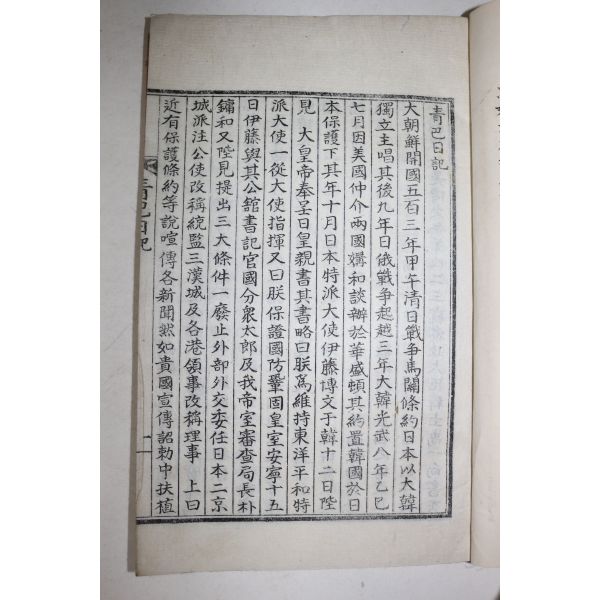 青巴日記
大朝鮮開國五百三年甲午清日戰爭馬關條約日本以大韓
獨立主唱其後九年日俄戰爭起越三年大韓光武八年乙巳
七月因美國仲介兩國媾和談辦於華盛頓其約置韓國於日
本保護下其年十月日本特派大使伊藤博文于韓十二日陛
見 大皇帝奉呈日皇親書其書略曰朕爲維持東洋平和特
派大使一從大使指揮又曰朕保證國防鞏固皇室安寧十五
日伊藤與其公舘書記官國分象太郎及我帝室審查局長朴
鏞和又陛見提出三大條件一廢止外部外交委任日本二京
城派注公使改稱統監三漢城及各港領事改稱理事 上曰
近有保護條約等說喧傳各新聞然如貴國宣傳詔勅中扶植
青巴日記
一